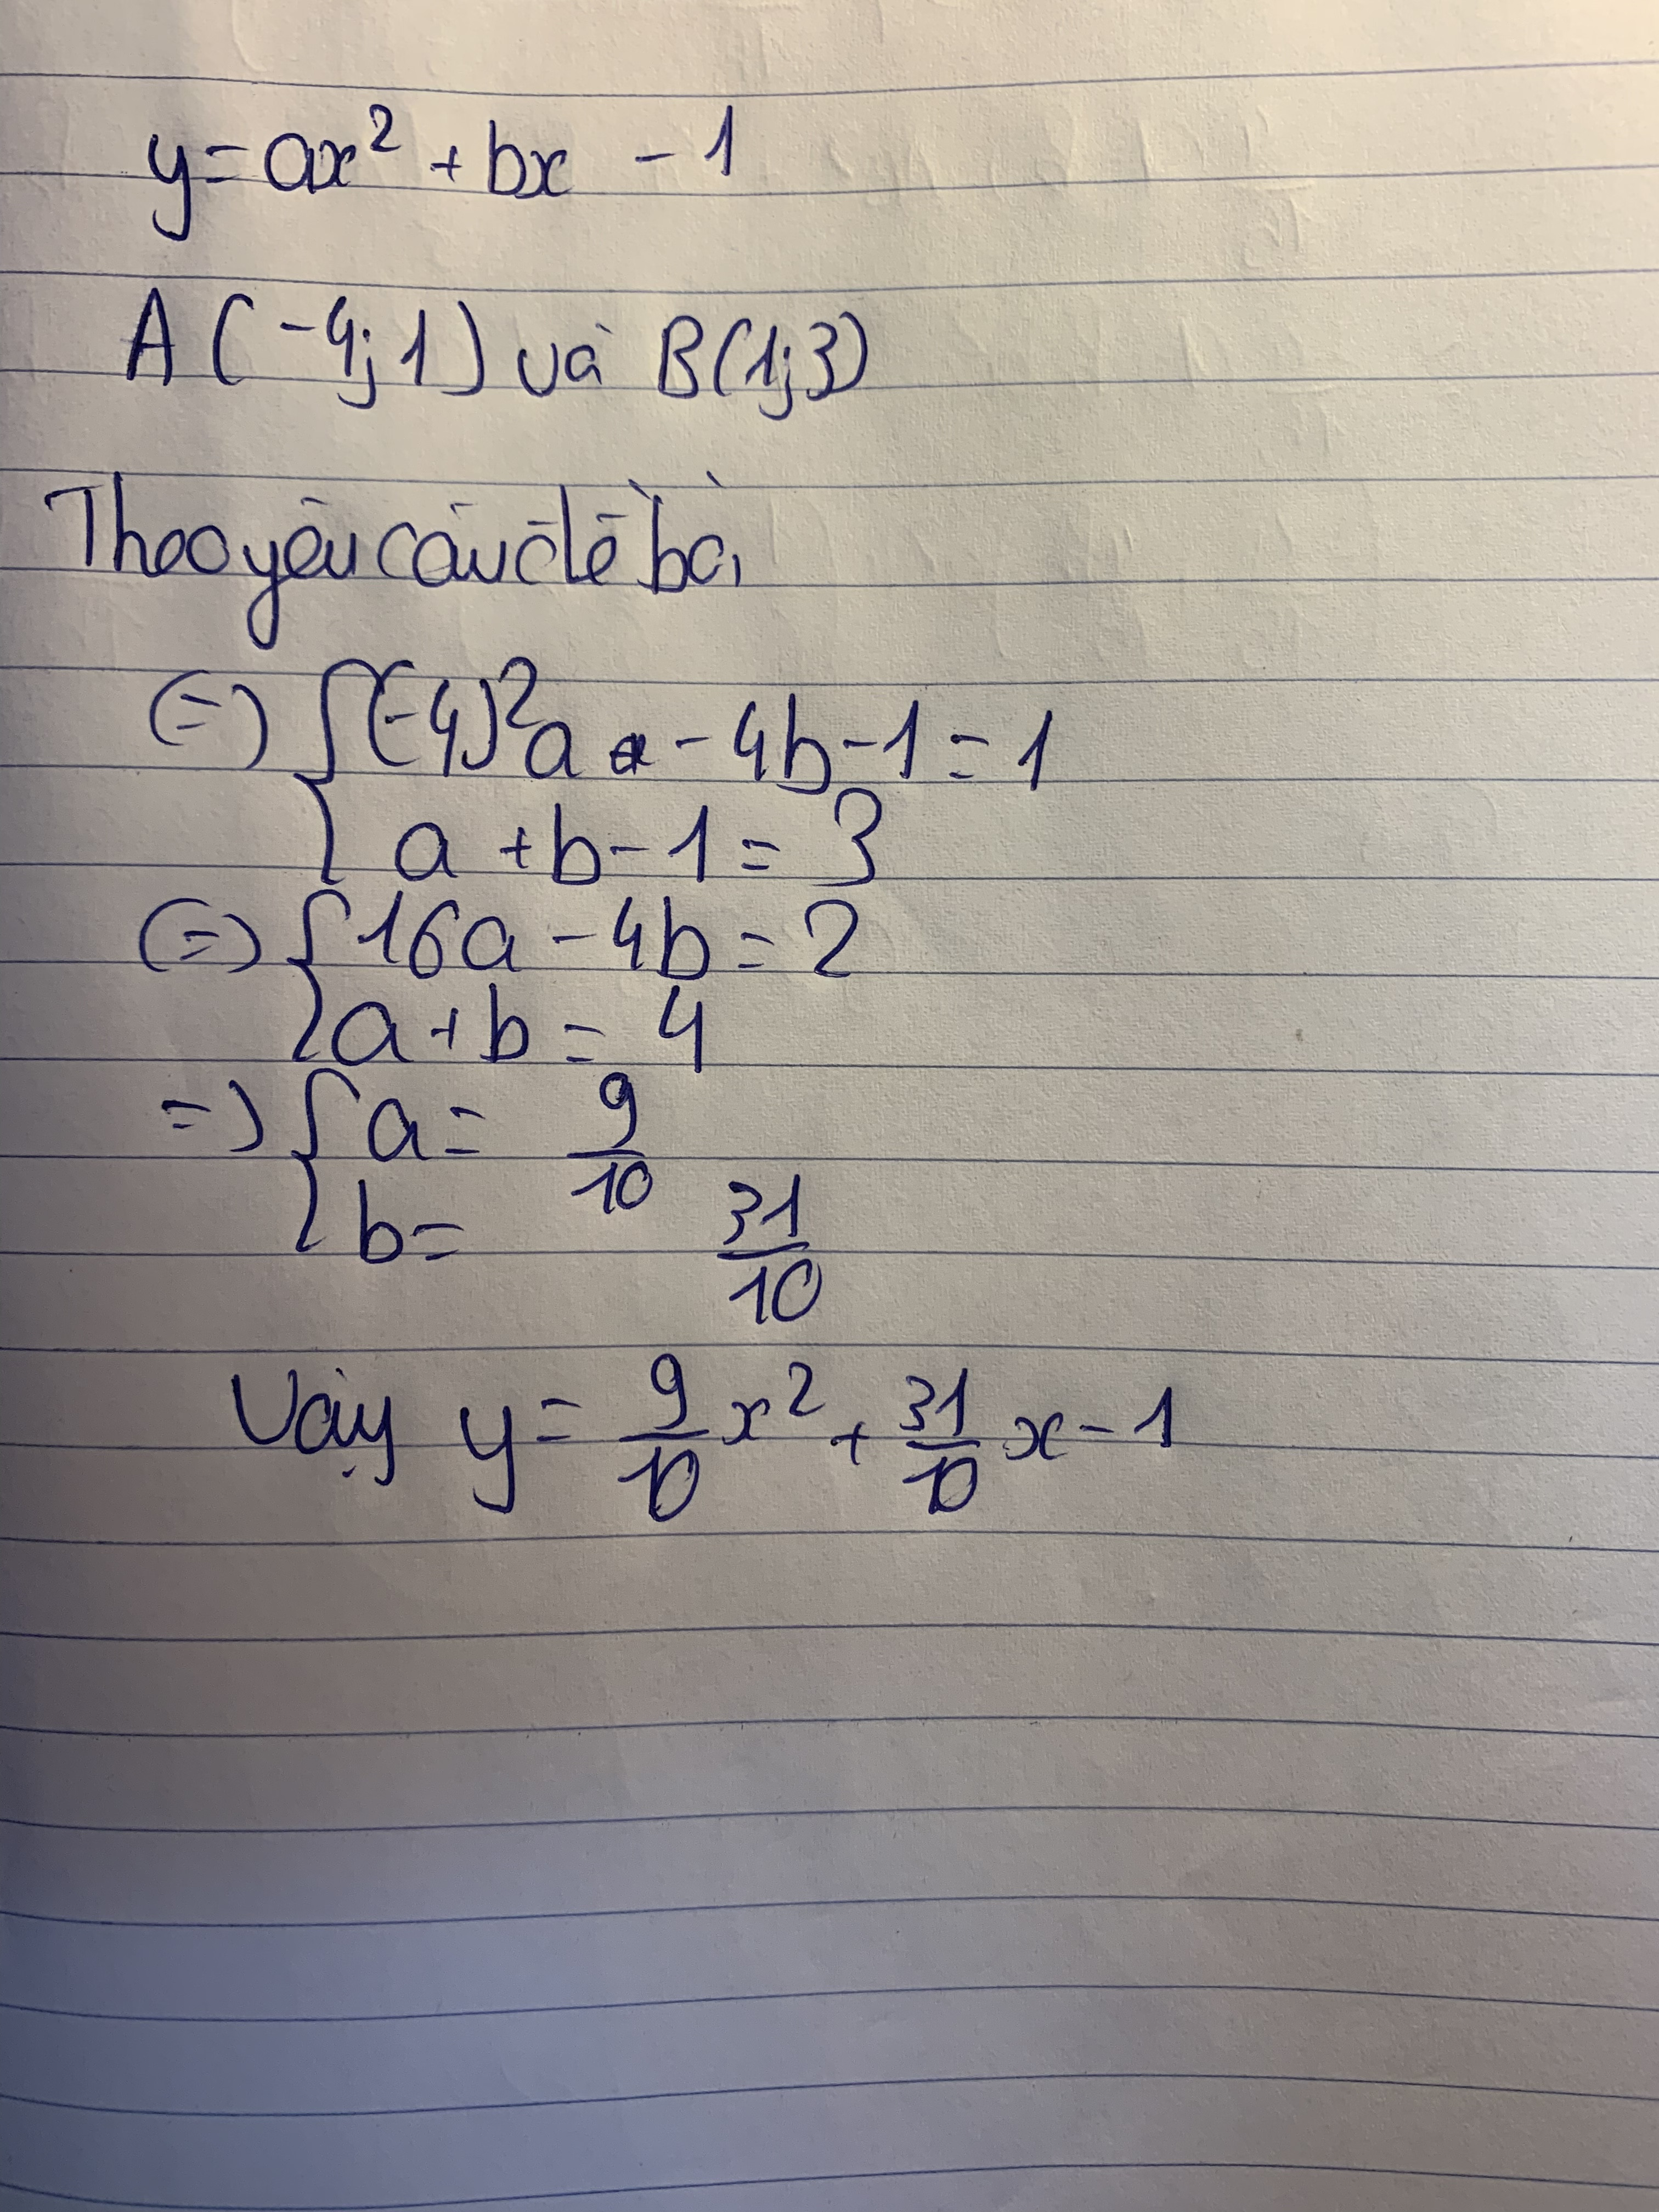 y = ax² + bx - 1
A(-4; 1) và B(1; 3)
Theo yêu cầu đề bài
(=) { (-4)²a - 4b - 1 = 1
a + b - 1 = 3
(=) { 16a - 4b = 2
a + b = 4
=) { a = 9/10
b = 31/10
Vậy y = 9/10 x² + 31/10 x - 1